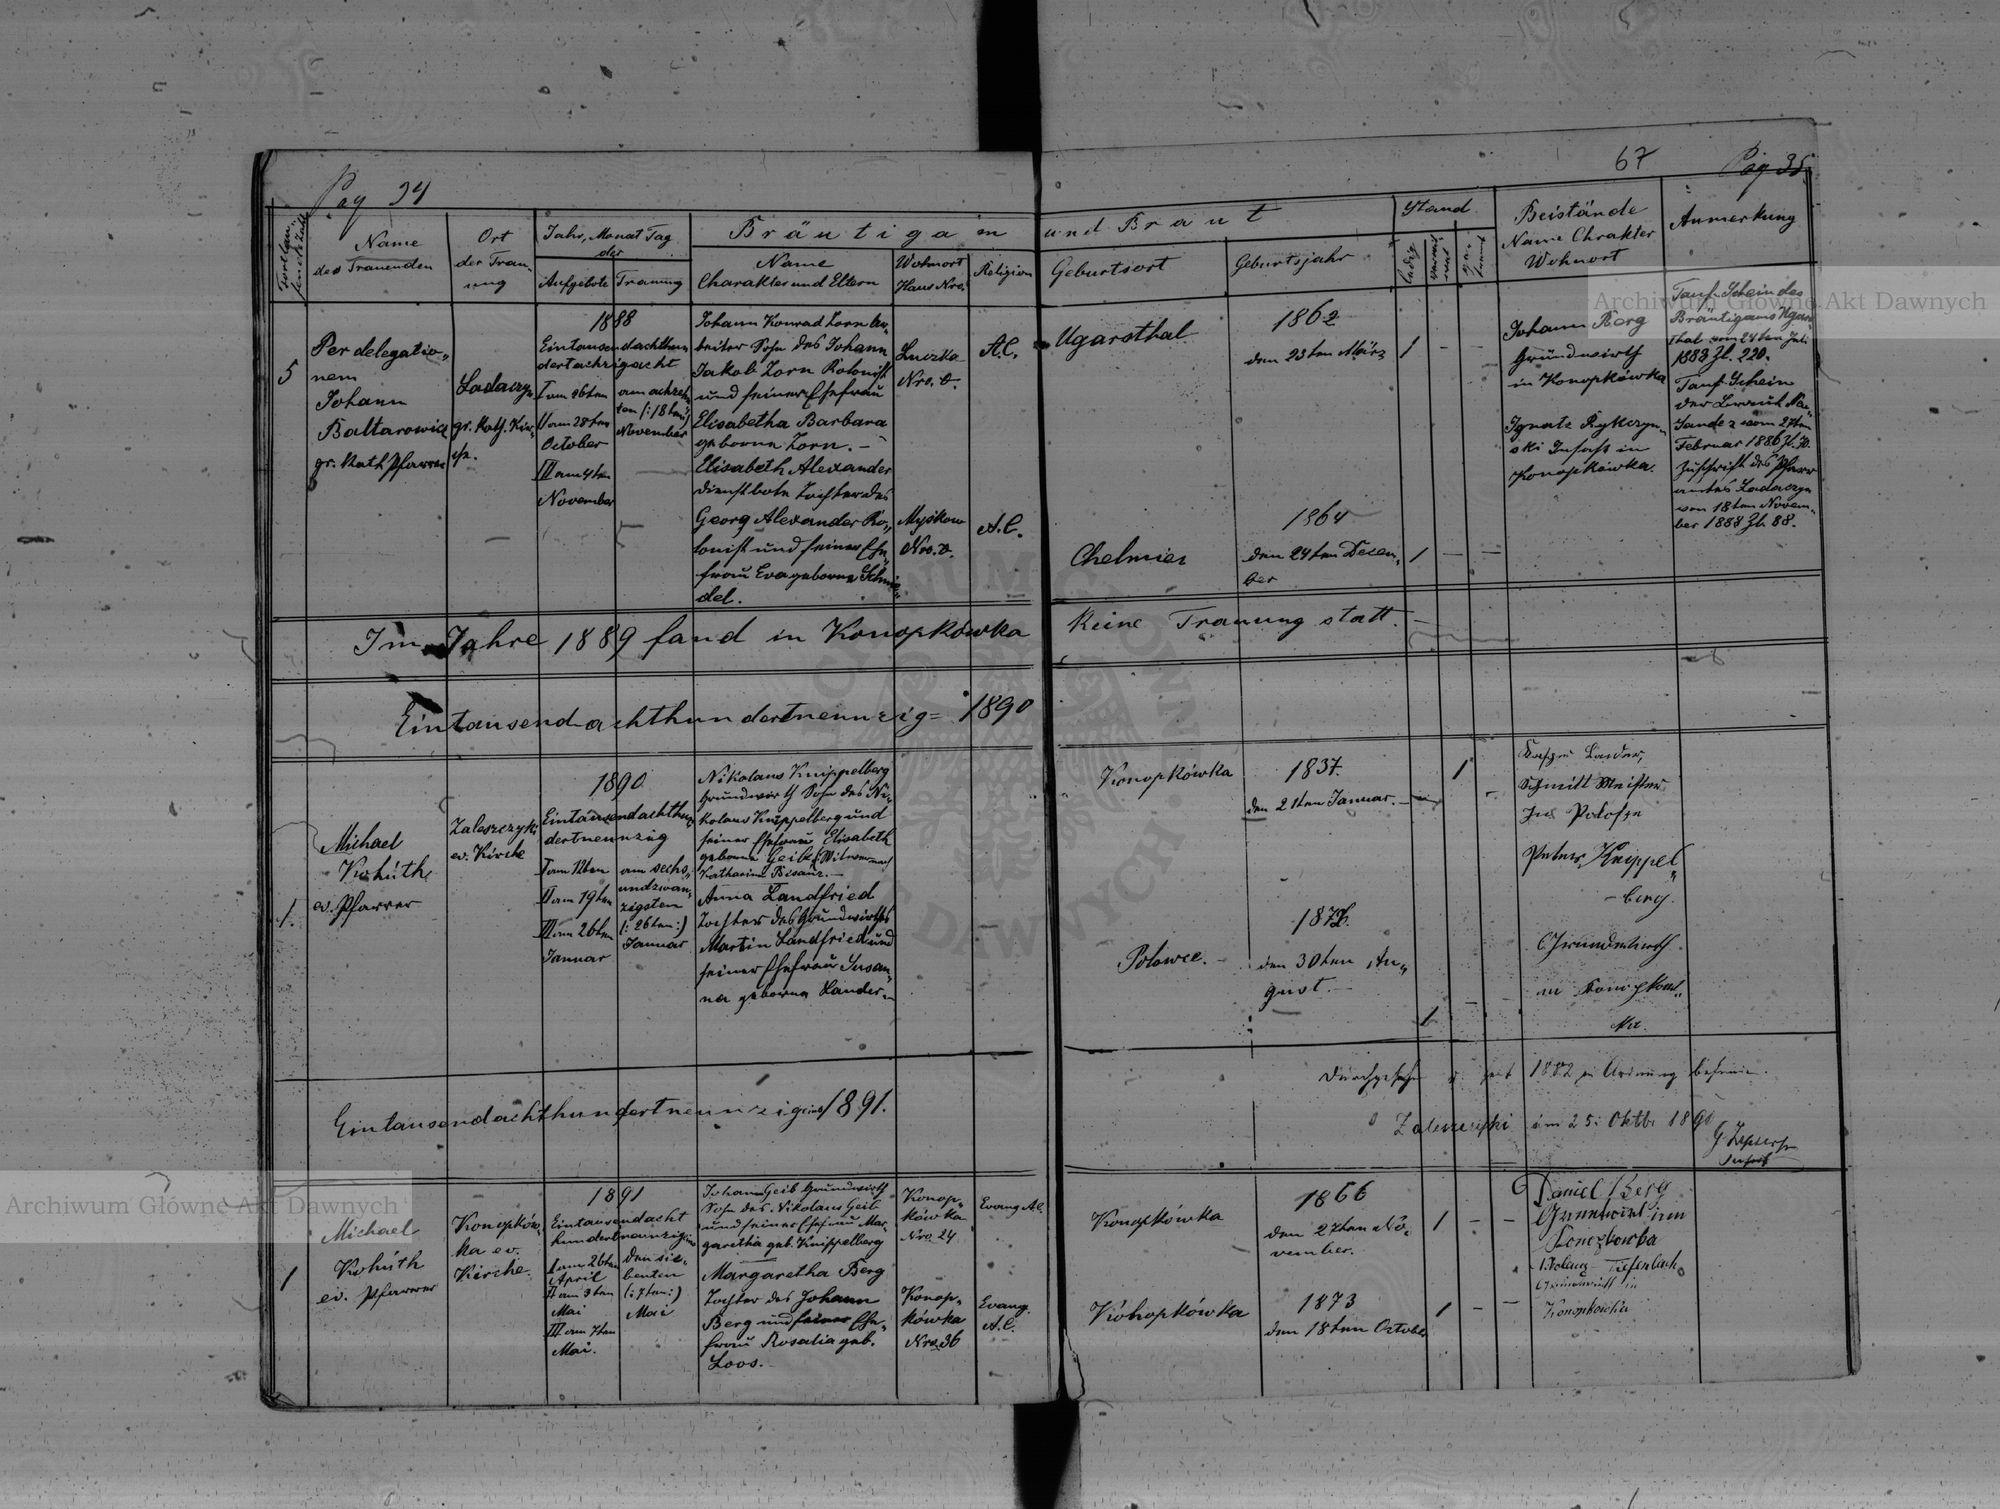 Pag 34
67
Pag 35.
Fortlau-
fende Zahl
Name
des Trauenden
Ort
der Trau-
ung
Jahr, Monat Tag
der
Aufgebote
Trauung
Bräutigam
Name
Charakter und Eltern
Wohnort
Haus Nro.
Religion
und Braut
Geburtsort
Geburtsjahr
Stand
ledig
Beistände
Name Chrakter
Wohnort
Anmerkung
5
Per delegatio„
nem
Johann
Baltarowicz
gr. Kath Pfarrer
Ladaczyn
gr. Kath. Kir„
che.
1888
Eintausendachthun
dertachzigacht
I am
II am 28ten
October
III am 4ten
November
am achzehn
ten (: 18ten :)
November
Johann Konrad Zorn Ar„
beiter Sohn des Johann
Jakob Zorn Kolonist
und seiner Ehefrau
Elisabetha Barbara
geborne Zorn. –
Elisabeth Alexander
Dienstbote Tochter des
Georg Alexander Ko„
lonist und seiner Ehe„
frau Eva geborne Schmie„
del.
Luczka
Nro. 0.
Myskow
Nro. 0.
A.C.
A.C.
Ugarsthal
1862
den 23ten März
1
Chelmiec
1864
den 24ten Decem„
ber
1
Johann Berg
Gründwirth
in Konopkówka
Ignatz Rykczyn„
ski Insasse in
Konopkówka.
Tauf-Schein des
Bräutigams Ugars„
thal vom 24ten Juli
1888 Zl. 220.
Tauf-Schein
der Braut Na„
Sandez vom 27ten
Februar 1886
Zuschrift des Pfarr
amtes Ladaczyn
vom 18ten Novem„
ber 1888 Zl. 88.
Im Jahre 1889 fand in Konopkówka keine Trauung statt. –
Eintausendachthundertneunzig = 1890
1.
Michael
Kohúth
ev. Pfarrer
Zaleszczyki
ev. Kirche
1890
Eintausendachthun
dertneunzig
I am 12ten
II am 19ten
III am 26ten
Januar
am sechs„
undzwan„
zigsten
(: 26ten :)
Januar
Nikolaus Knippelberg
Grundwirth Sohn des Ni„
kolaus Knippelberg und
seiner Ehefrau Elisabeth
geborne Geib
Katharina Bisanz. –
Anna Landfried
Tochter des Grundwirths
Martin Landfried und
seiner Ehefrau Susan„
na geborne Lander. –
Konopkówka
1837.
den 21ten Januar. –
1
Polowce. –
den 30ten Au„
gust. –
1
Schmitt Meister
Peter Knippel„
– berg.
Grundwirth
in Konopkow„
ka.
Eintausendachthundertneunzigeins 1891.
1882 in Ordnung befunden.
Zaleszczyki am 25: Oktbr 1890
1
Michael
Kohúth
ev. Pfarrer
Konopków„
ka ev.
Kirche.
1891
Eintausendacht
hundertneunzigeins
I am 26ten
April
II am 3ten
Mai
III am 7ten
Mai.
den sie„
benten
(: 7ten :)
Mai
Johann Geib Grundwirth
Sohn des Nikolaus Geib
und seiner Ehefrau Mar„
garetha geb. Knippelberg
Margaretha Berg
Tochter des Johann
Berg und seiner Ehe„
frau Rosalia geb.
Loos. –
Konop„
kówka
Nro 24
Konop„
kówka
Nro 36
Evang A.C.
Evang.
A.C.
Konopkówka
1866
den 27ten No„
vember.
1
Konopkówka
1873
den 18ten October
1
Daniel Berg
Grundwirt in
Konopkowka
Nikolaus Tiefenbach
Grundwirth in
Konopkówka
Archiwum Główne Akt Dawnych
Archiwum Główne Akt Dawnych